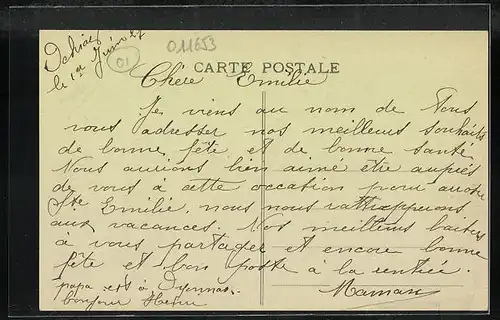 le 1er Juin 27
011653
01
CARTE POSTALE
Chère Emilie
Je viens au nom de Tous
vous adresser nos meilleurs souhaits
de bonne fête et de bonne santé
Nous aurions bien aimé être auprès
de vous à cette occation pour
Ste Emilie, nous nous rattrapperons
aux vacances. Nos meilleurs baisers
à vous partager et encore bonne
fête et bon poste à la rentrée.
papa est à Oyonnax Maman
bonjour Henri